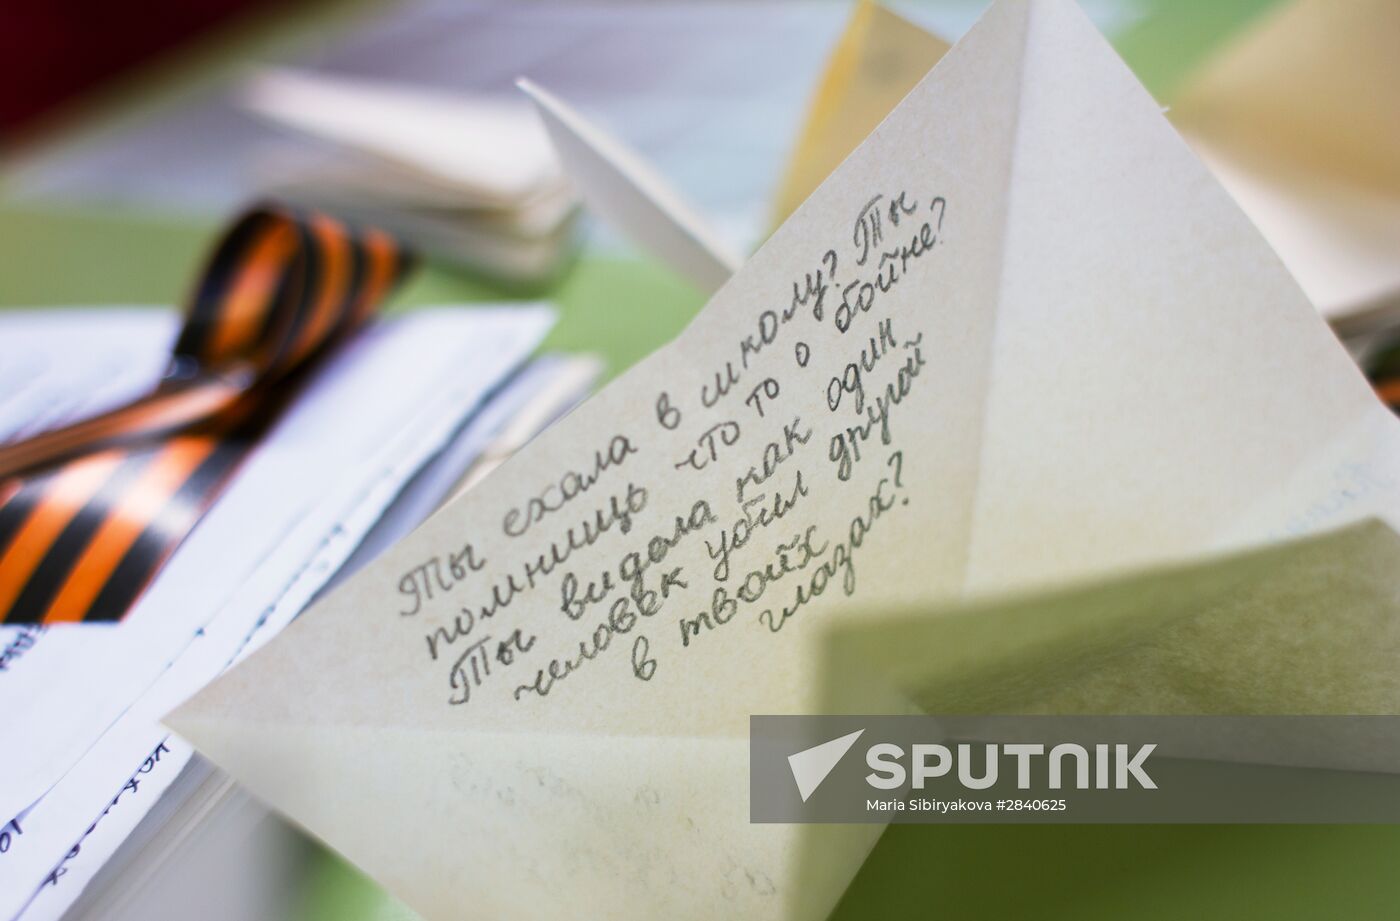 Ты ехала в школу? Ты
помнишь что то о бойне?
Ты видела как один
человек убил другой
в твоих
глазах?
SPUTNIK
Maria Sibiryakova #2840625